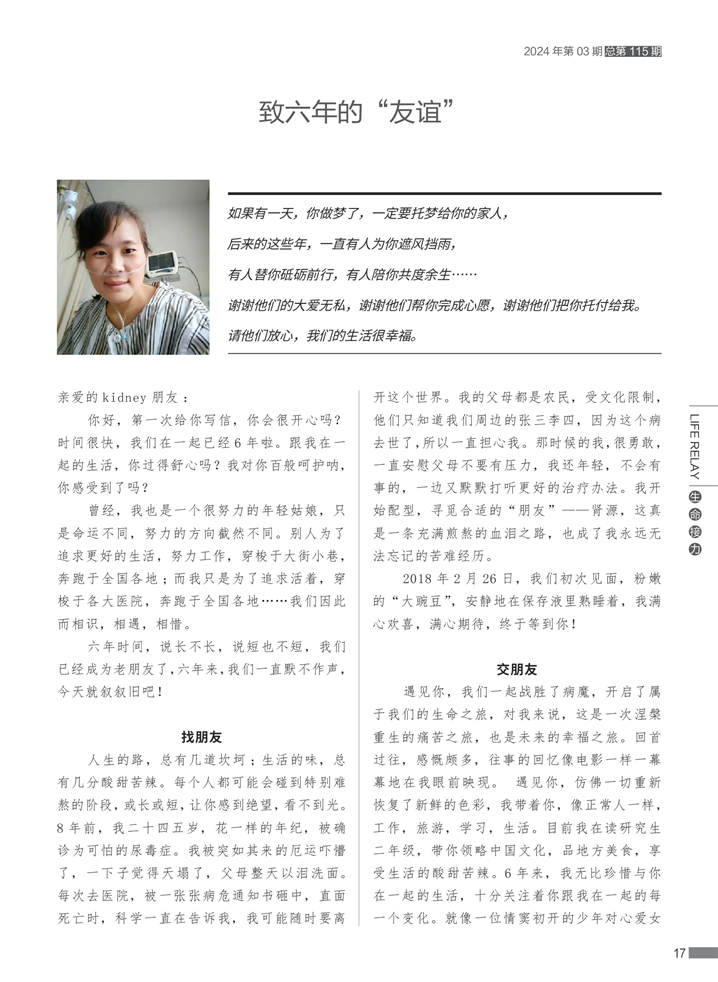 2024 年第 03 期 总第 115 期
致六年的“友谊”
如果有一天，你做梦了，一定要托梦给你的家人，
后来的这些年，一直有人为你遮风挡雨，
有人替你砥砺前行，有人陪你共度余生……
谢谢他们的大爱无私，谢谢他们帮你完成心愿，谢谢他们把你托付给我。
请他们放心，我们的生活很幸福。
亲爱的 kidney 朋友：
你好，第一次给你写信，你会很开心吗？
时间很快，我们在一起已经 6 年啦。跟我在一
起的生活，你过得舒心吗？我对你百般呵护呐，
你感受到了吗？
曾经，我也是一个很努力的年轻姑娘，只
是命运不同，努力的方向截然不同。别人为了
追求更好的生活，努力工作，穿梭于大街小巷，
奔跑于全国各地；而我只是为了追求活着，穿
梭于各大医院，奔跑于全国各地……我们因此
而相识，相遇，相惜。
六年时间，说长不长，说短也不短，我们
已经成为老朋友了，六年来，我们一直默不作声，
今天就叙叙旧吧！
找朋友
人生的路，总有几道坎坷；生活的味，总
有几分酸甜苦辣。每个人都可能会碰到特别难
熬的阶段，或长或短，让你感到绝望，看不到光。
8 年前，我二十四五岁，花一样的年纪，被确
诊为可怕的尿毒症。我被突如其来的厄运吓懵
了，一下子觉得天塌了，父母整天以泪洗面。
每次去医院，被一张张病危通知书砸中，直面
死亡时，科学一直在告诉我，我可能随时要离
开这个世界。我的父母都是农民，受文化限制，
他们只知道我们周边的张三李四，因为这个病
去世了，所以一直担心我。那时候的我，很勇敢，
一直安慰父母不要有压力，我还年轻，不会有
事的，一边又默默打听更好的治疗办法。我开
始配型，寻觅合适的“朋友”——肾源，这真
是一条充满煎熬的血泪之路，也成了我永远无
法忘记的苦难经历。
2018 年 2 月 26 日，我们初次见面，粉嫩
的“大豌豆”，安静地在保存液里熟睡着，我满
心欢喜，满心期待，终于等到你！
交朋友
遇见你，我们一起战胜了病魔，开启了属
于我们的生命之旅，对我来说，这是一次涅槃
重生的痛苦之旅，也是未来的幸福之旅。回首
过往，感慨颇多，往事的回忆像电影一样一幕
幕地在我眼前映现。 遇见你，仿佛一切重新
恢复了新鲜的色彩，我带着你，像正常人一样，
工作，旅游，学习，生活。目前我在读研究生
二年级，带你领略中国文化，品地方美食，享
受生活的酸甜苦辣。6 年来，我无比珍惜与你
在一起的生活，十分关注着你跟我在一起的每
一个变化。就像一位情窦初开的少年对心爱女
LIFE RELAY
生命接力
17